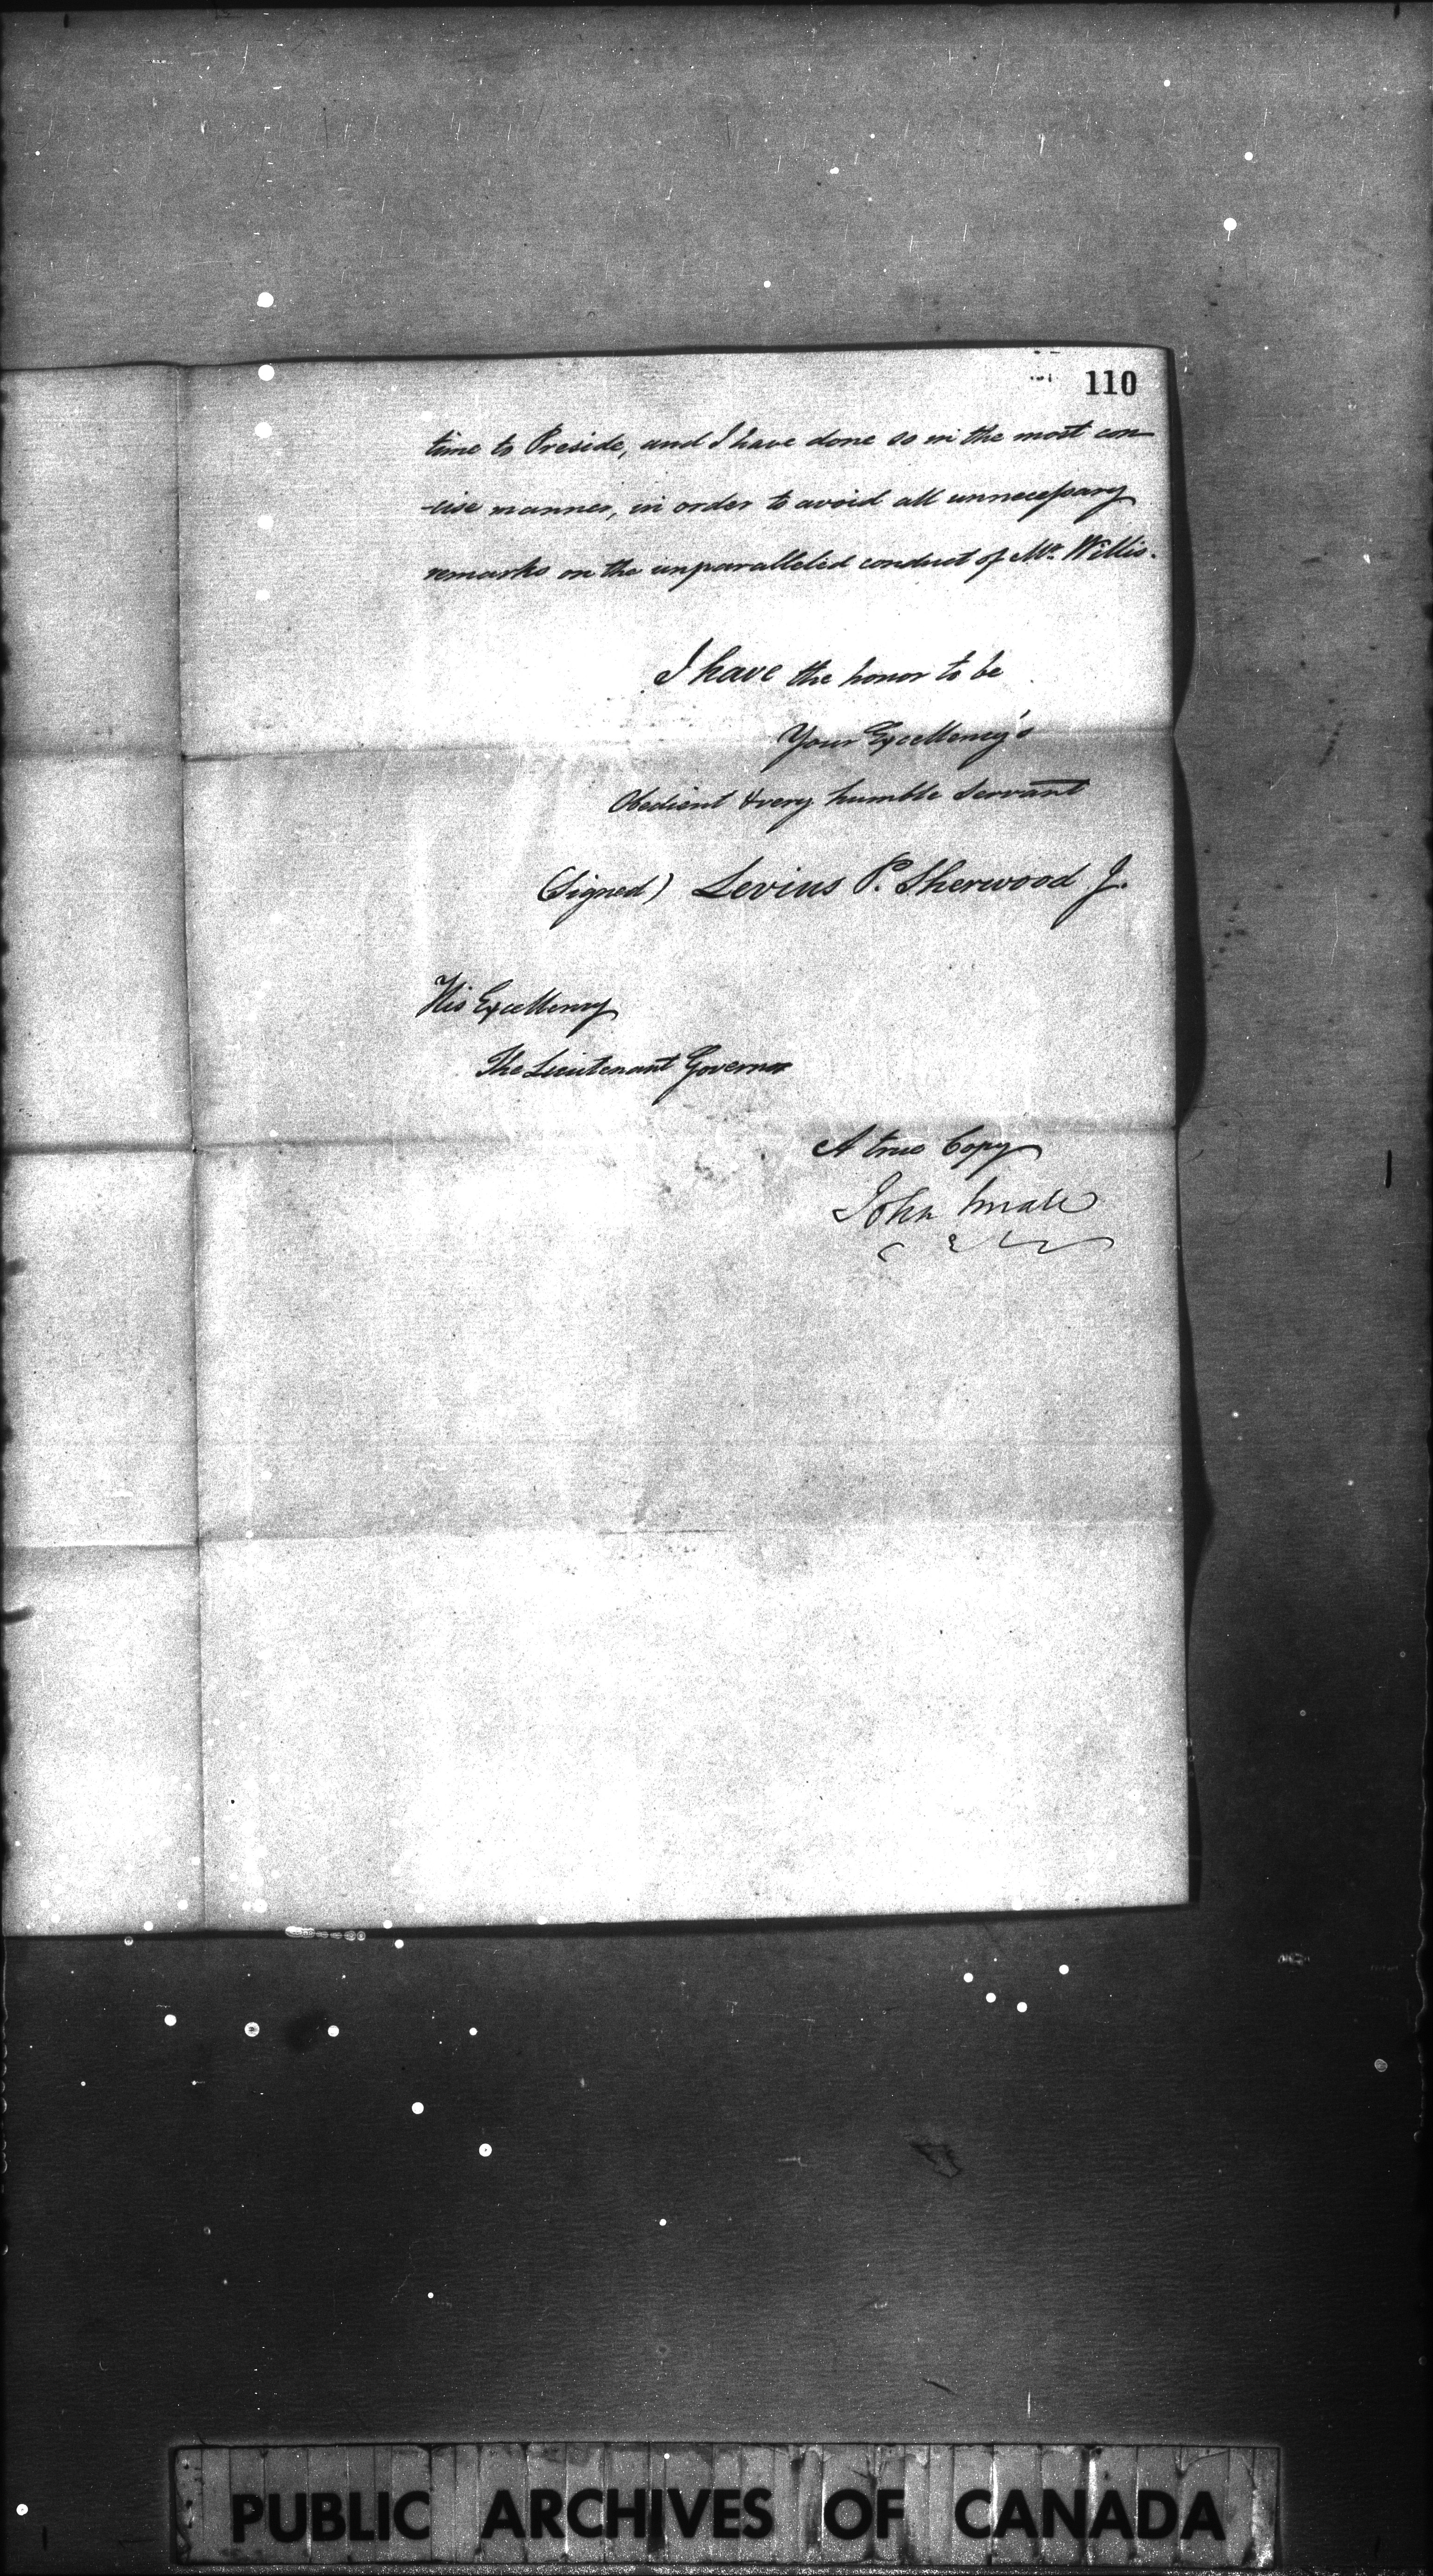 110
time to Preside, and I have done so in the most con-
-cise manner, in order to avoid all unnecessary
remarks on the unparalleled conduct of Mr. Willis.
I have the honor to be
Your Excellency's
Obedient & very humble Servant
(Signed) Levius P. Sherwood J.
His Excellency
The Lieutenant Governor
A true Copy
John Small
PUBLIC ARCHIVES OF CANADA